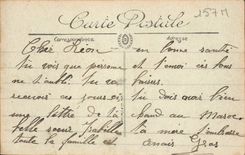 Carte Postale
Correspondance
Adresse
257M
Cher Léon — en bonne santé
tu vois que personne et t'envoi ces bons
ne t'oublie tu va baisers.
recevoir ces jours-ci tu dois avoir bien
une lettre de ta chaud au Maroc
belle soeur Isabelle ta mère
toute la famille est Anaïs Gras